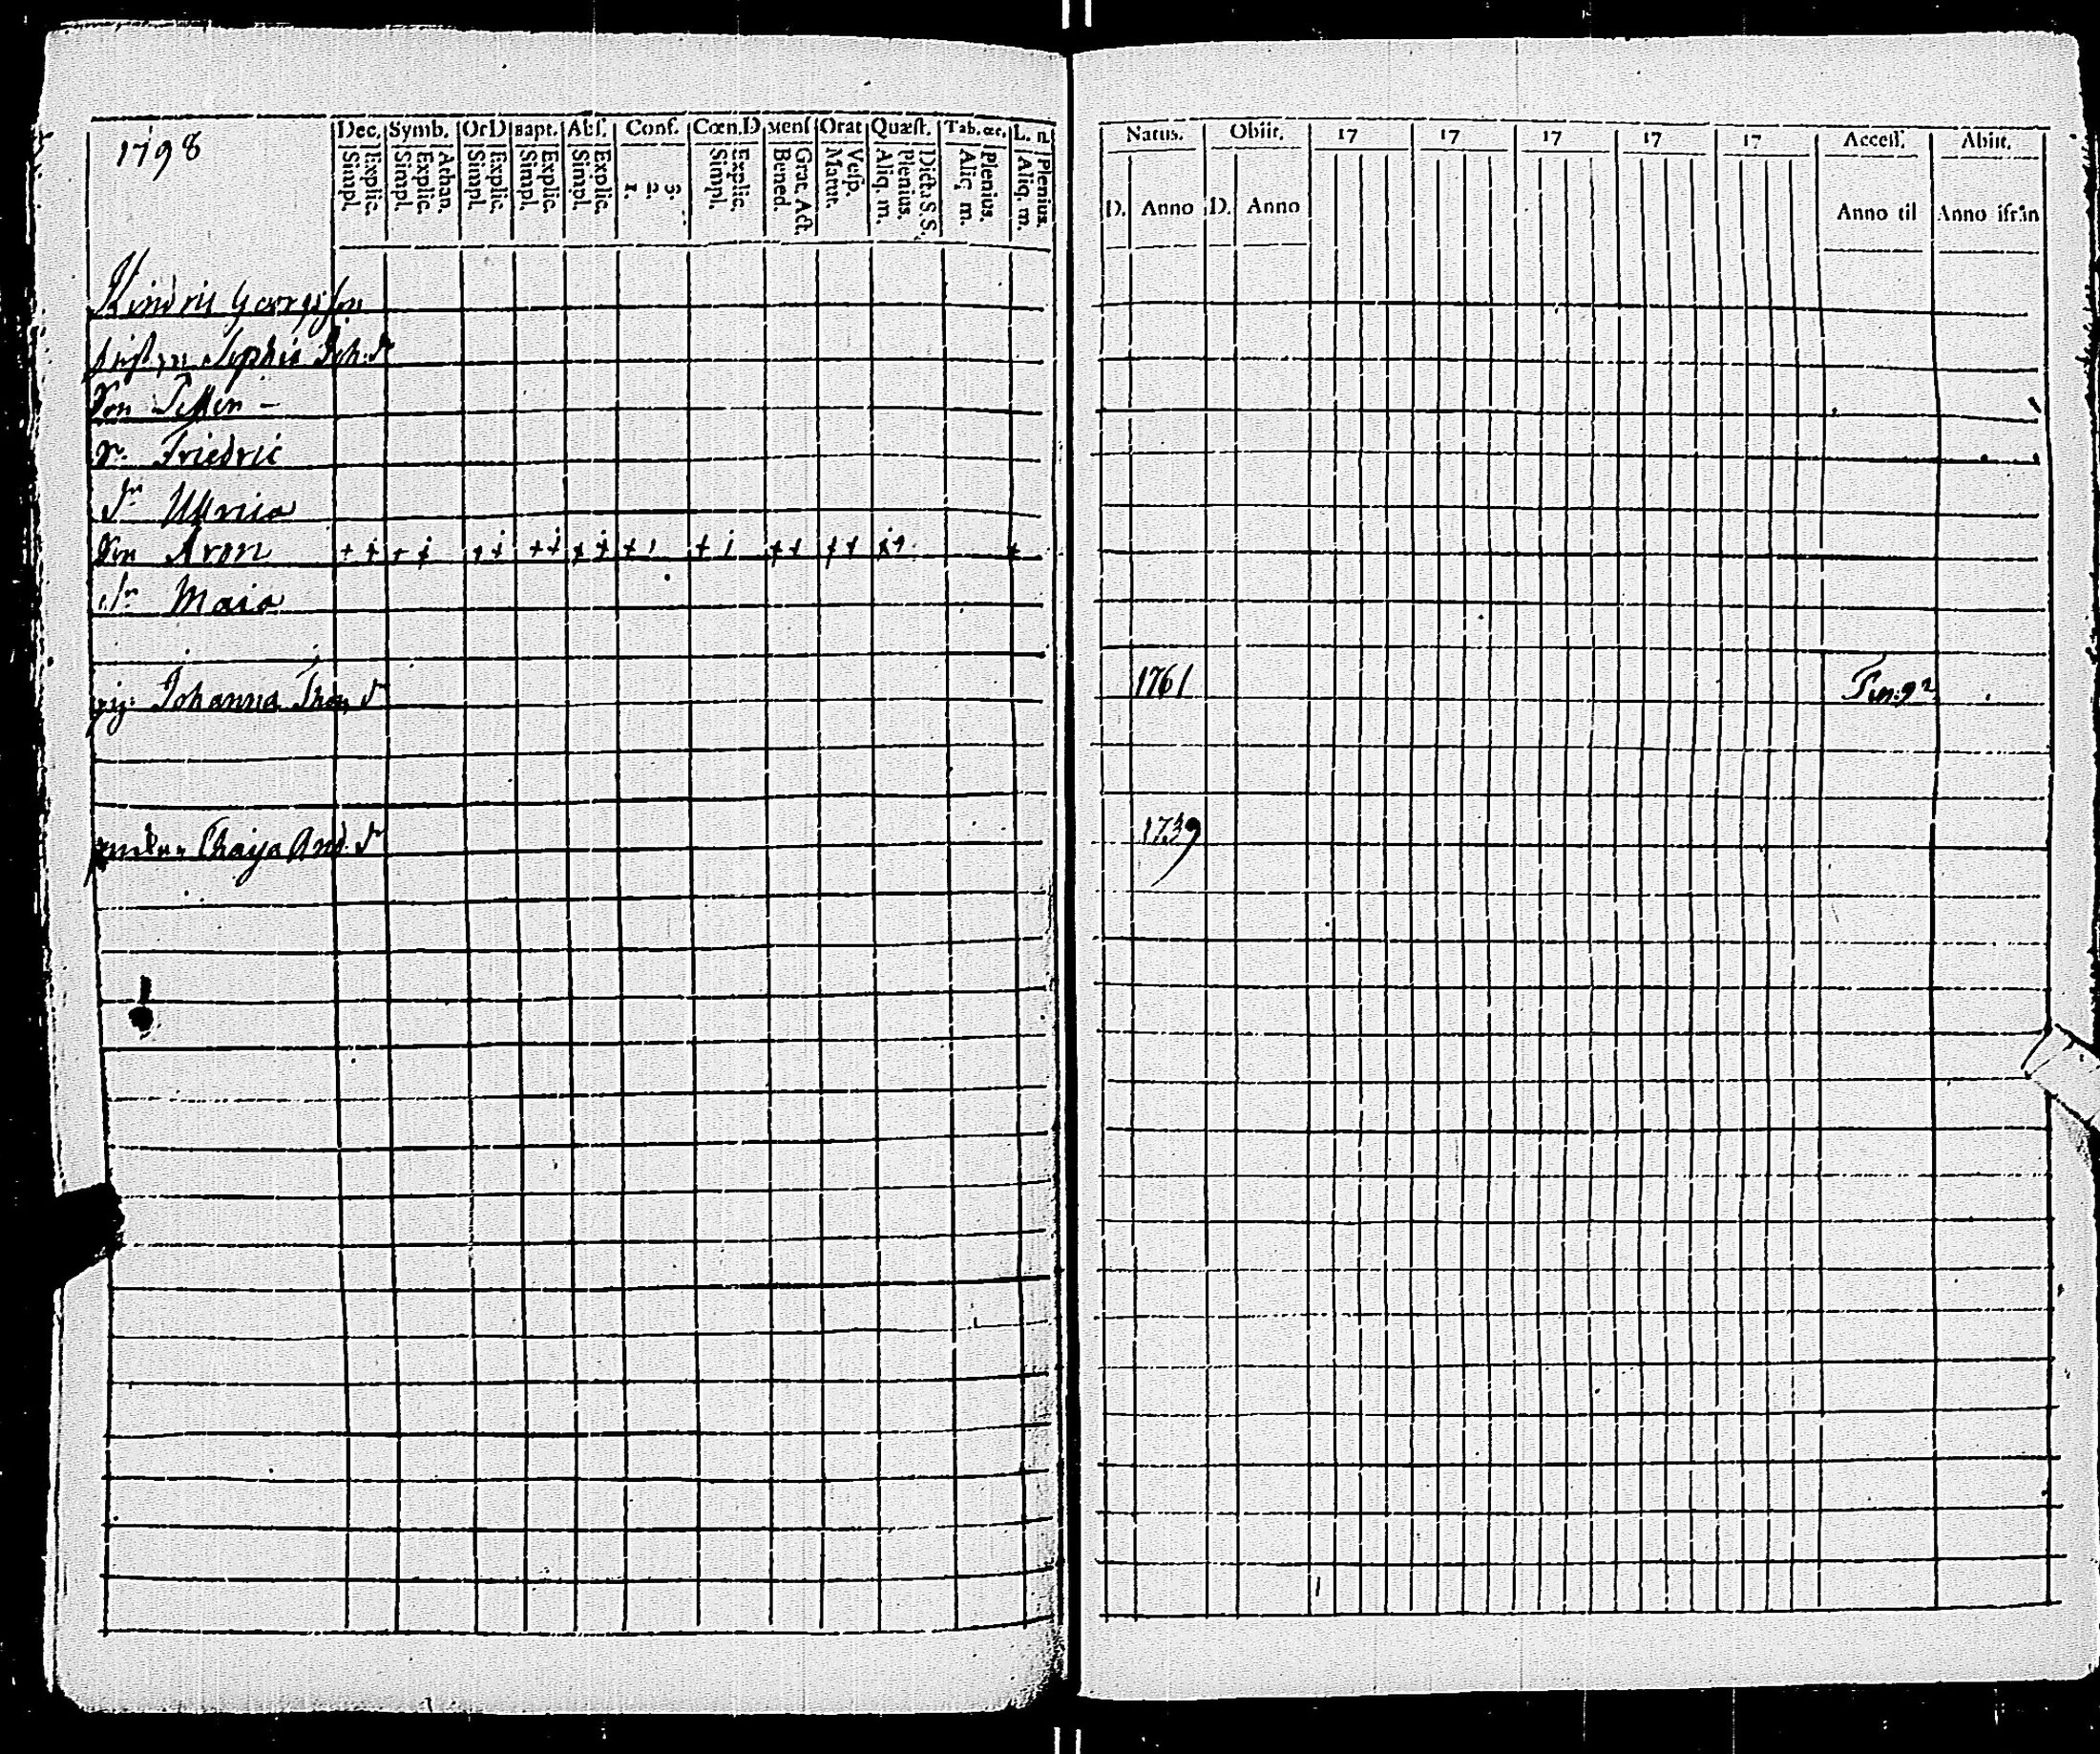 1798
Dec. Symb. OrD Bapt. Abs. Conf. Cœn.D Mens Orat Quæst. Tab.œc. L. n.
Simpl. Explic. Simpl. Explic. Athan. Simpl. Explic. Simpl. Explic. Simpl. Explic. 1. 2. 3. Simpl. Explic. Bened. Grat. Act. Matut. Vesp. Aliq. m. Plenius. Dicta S.S. Aliq. m. Plenius. Aliq. m. Plenius.
Natus. Obiit. 17 17 17 17 17 Access. Abiit.
D. Anno D. Anno Anno til Anno ifrån
Hindric Georgsson
Sophia Joh. dr
Son Petter -
Sn Friedric
Dr Ulrica
Son Aron
Dr Maja
pig. Johanna Tho. dr 1761
Chaija And. dr 1739